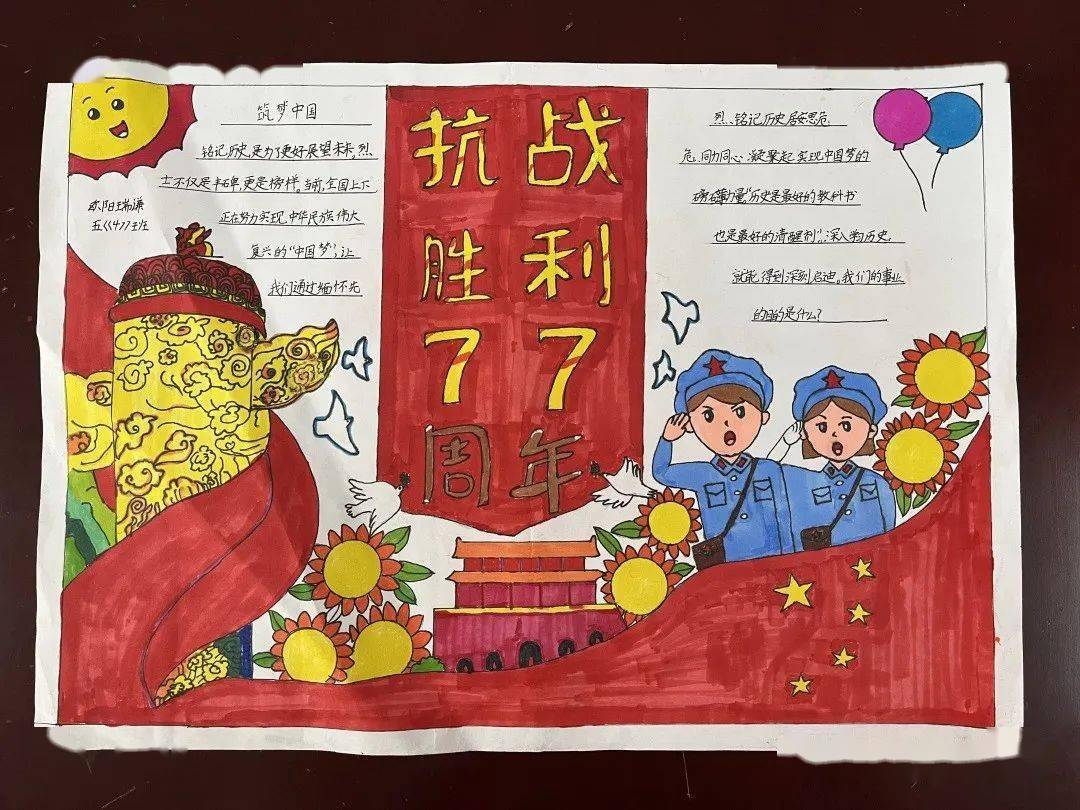 筑梦中国
铭记历史,是为了更好展望未来。烈
士不仅是丰碑,更是榜样。当前,全国上下
正在努力实现中华民族伟大
复兴的“中国梦”,让
我们通过缅怀先
欧阳瑞谦
抗战
胜利
77
周年
烈、铭记历史居安思危,
危、同心、凝聚起实现中国梦的
磅礴力量,“历史是最好的教科书
也是最好的清醒剂”,深入学习历史,
就能得到深刻启迪。我们的事业
的目的是什么?